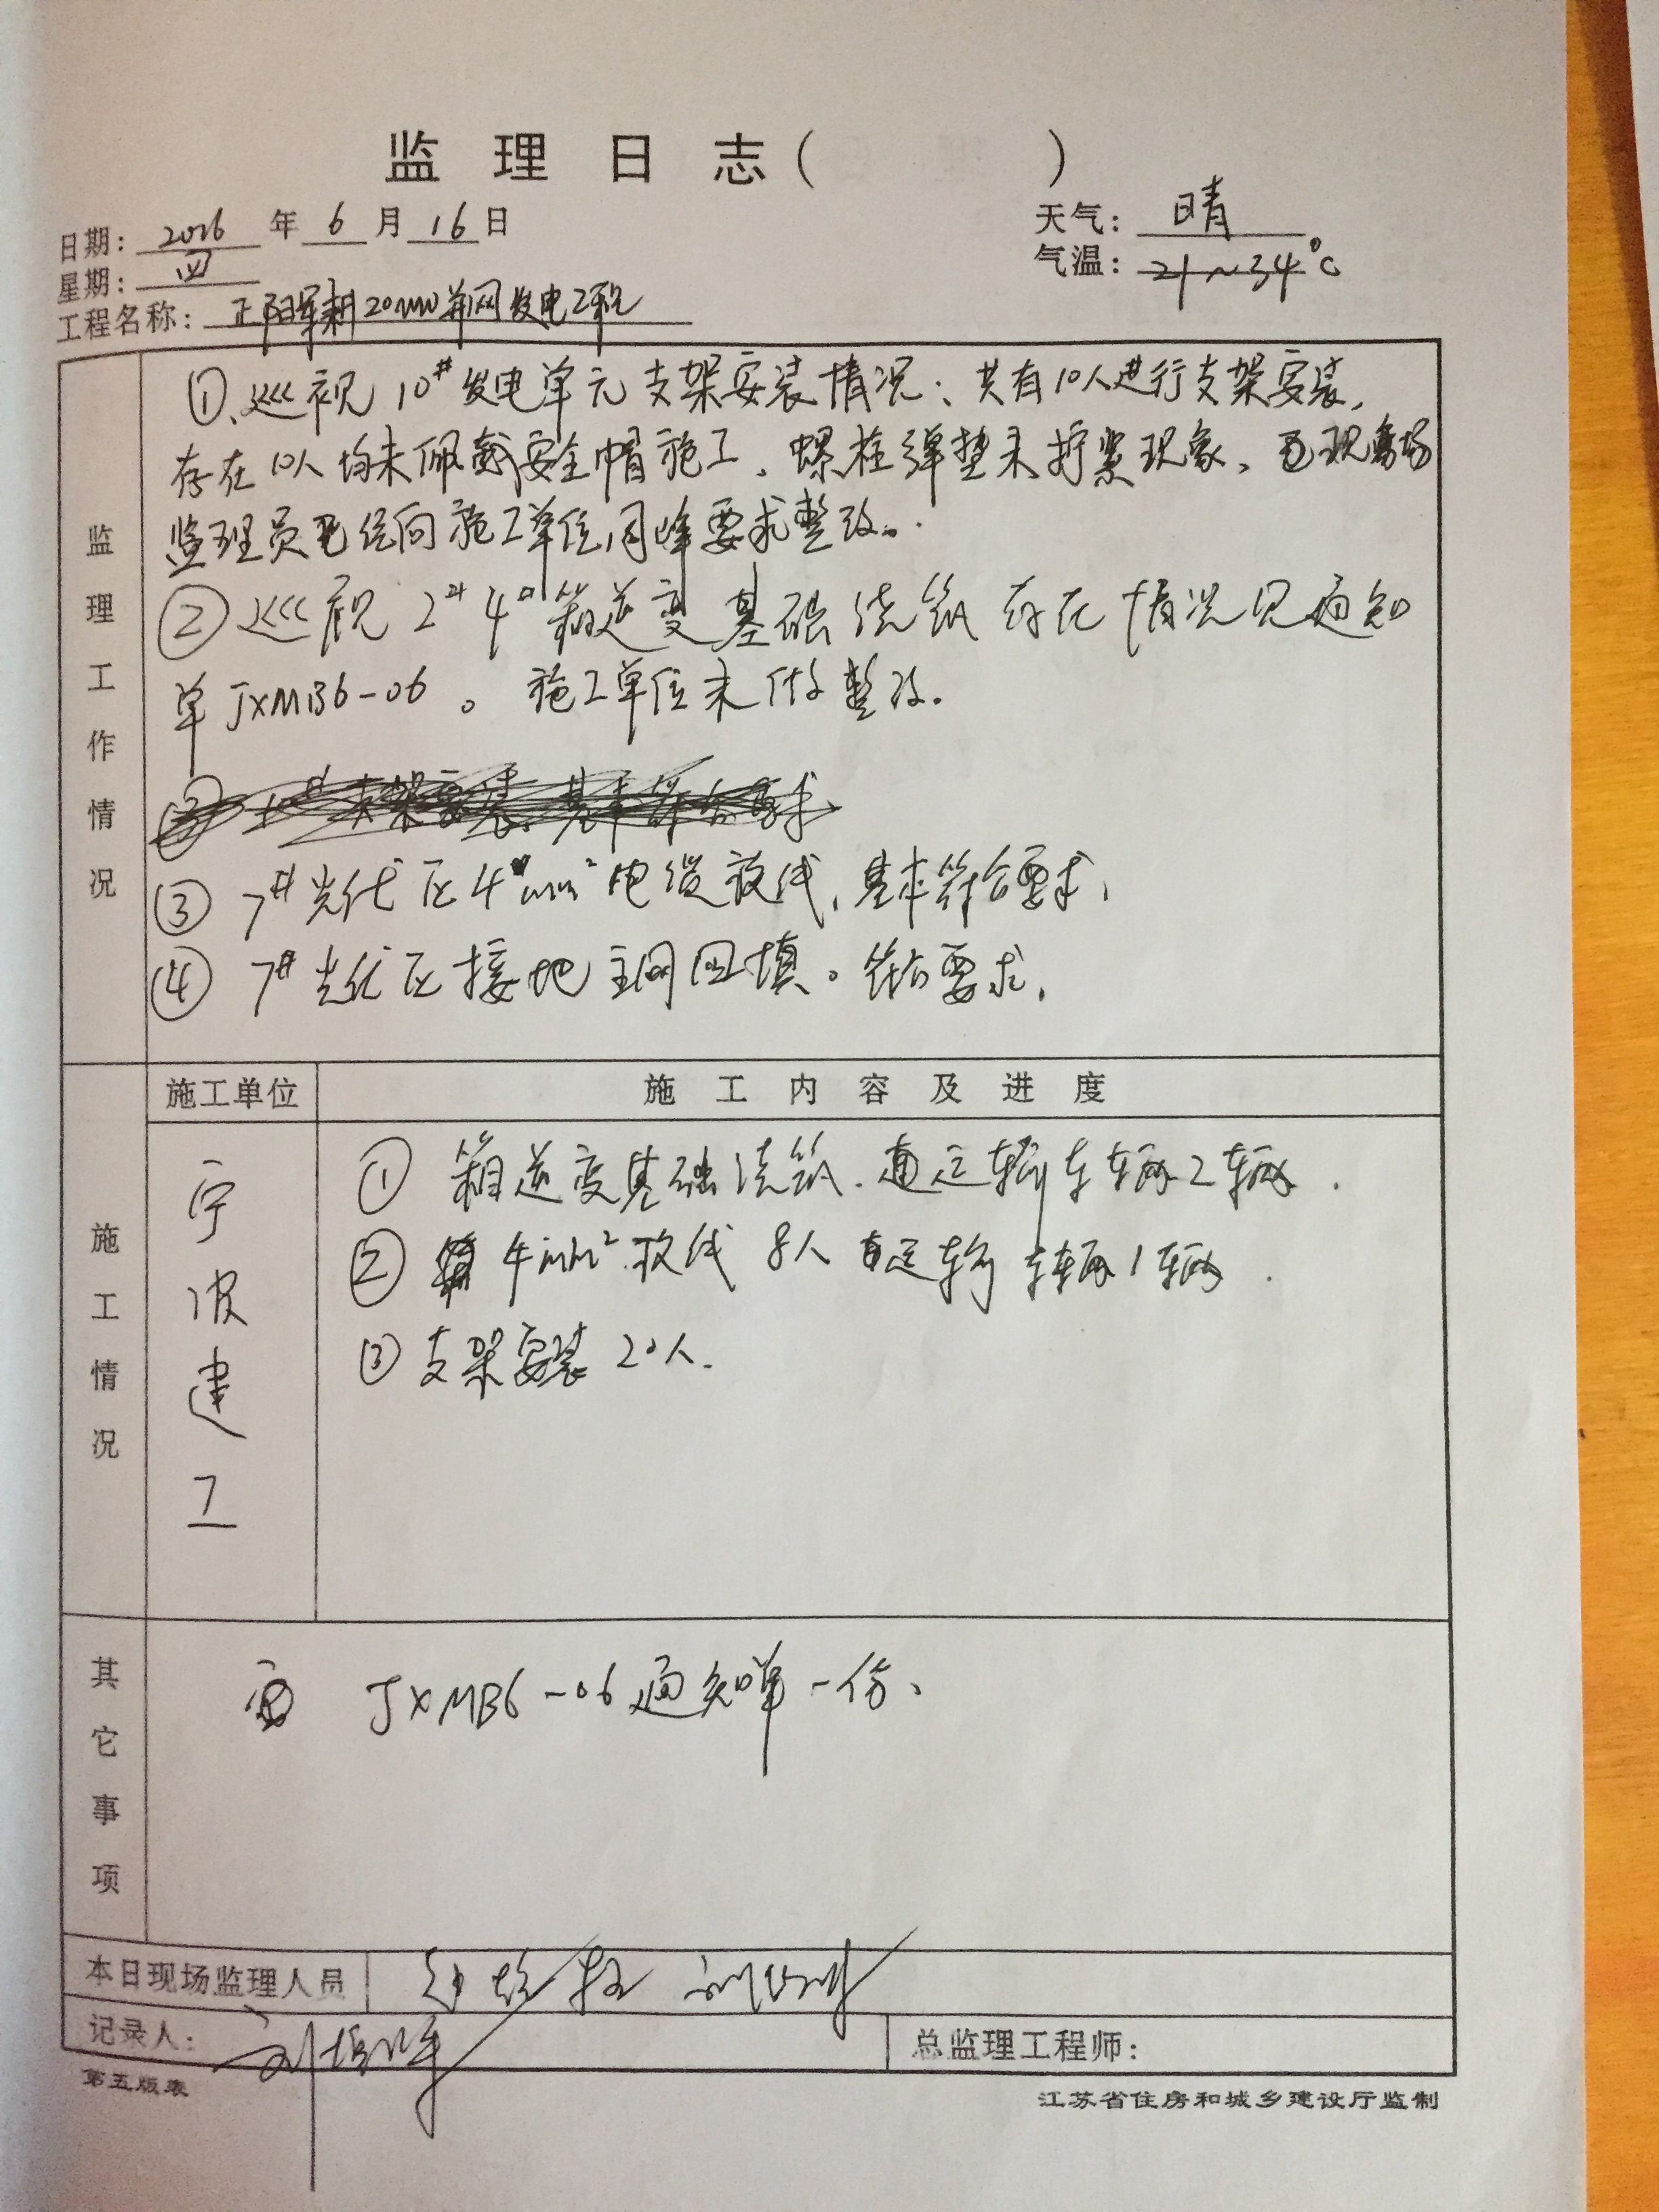 监理日志(　　　)
日期: 2016 年 6 月 16 日 天气: 晴
星期: 四 气温: 21～34℃
工程名称: 正阳军耕20MW并网发电工程
监理工作情况
①、巡视10#发电单元支架安装情况、共有10人进行支架安装,
存在10人均未佩戴安全帽施工、螺栓弹垫未拧紧现象、现场
监理员向施工单位要求整改。
②巡视2#4#箱逆变基础浇筑存在情况见通知
单JXMB6-06。施工单位未做整改.
③7#光伏区4mm²电缆放线,基本符合要求,
④7#光伏区接地主网回填。符合要求,
施工情况
施工单位 施工内容及进度
宁波建工
① 箱逆变基础浇筑.运输车辆2辆.
② 4mm²放线 8人 运输车辆1辆.
③支架安装20人.
其它事项
JXMB6-06通知单一份、
本日现场监理人员
记录人:
总监理工程师:
第五版表 江苏省住房和城乡建设厅监制